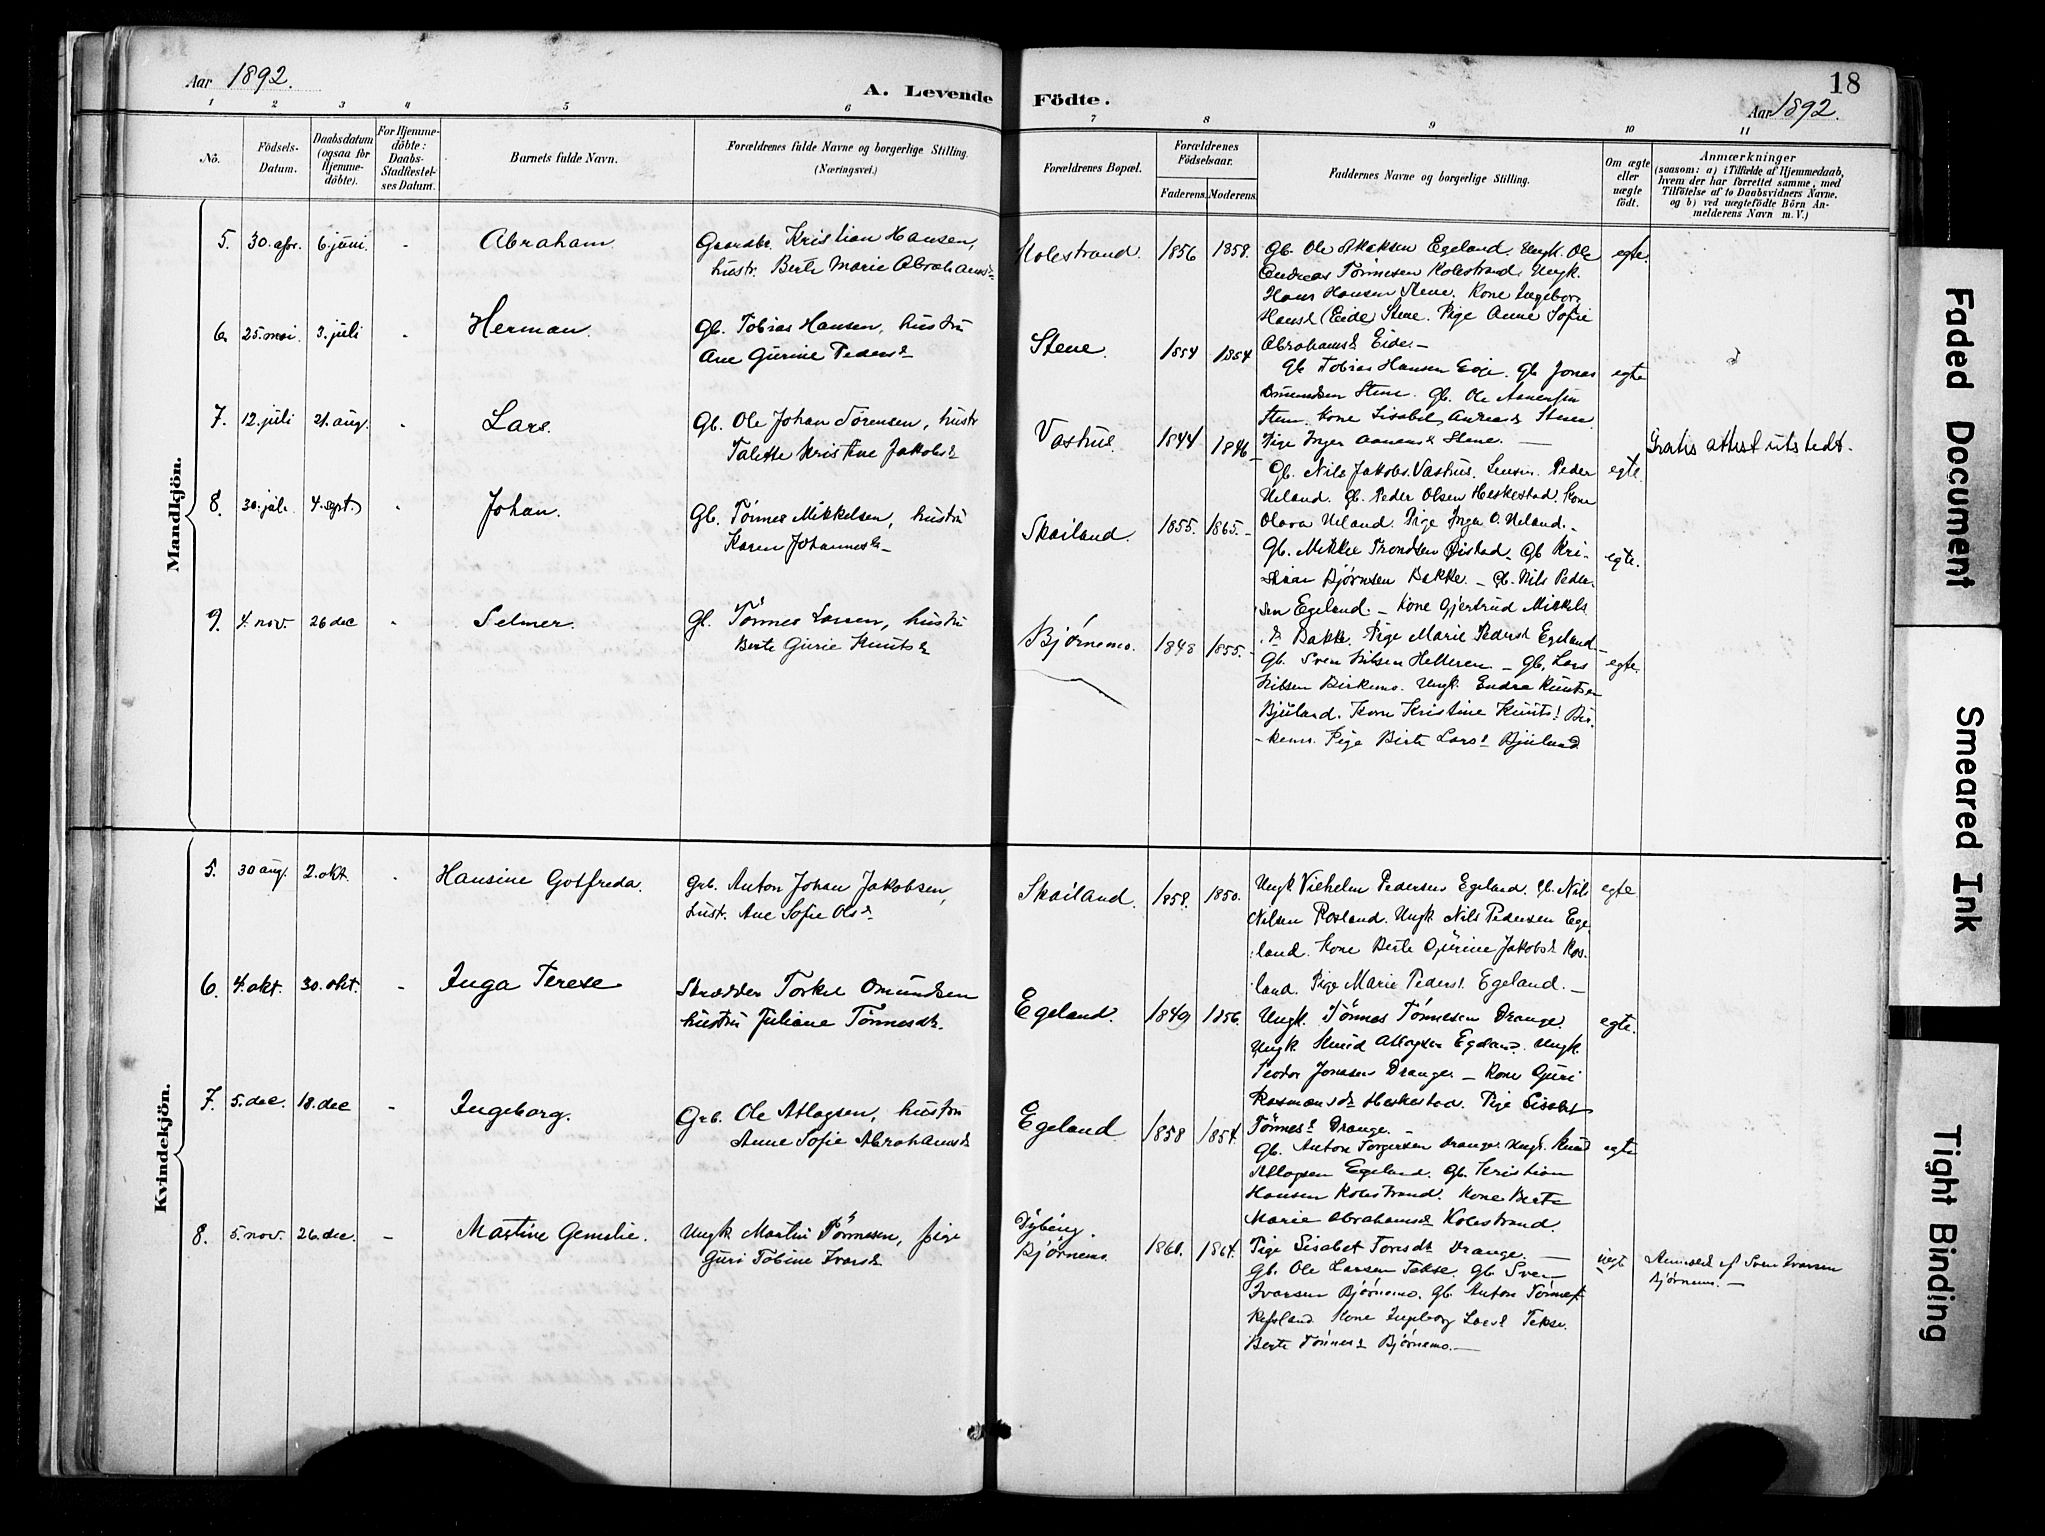 Aar 1892.
A. Levende Födte.
18
Aar 1892.
1 2 3 4 5 6 7 8 9 10 11
Nô.
Födsels-Datum.
Daabsdatum (ogsaa for Hjemme-döbte).
For Hjemme-döbte: Daabs-Stadfæstel-ses Datum.
Barnets fulde Navn.
Forældrenes fulde Navne og borgerlige Stilling. (Næringsvei.)
Forældrenes Bopæl.
Forældrenes Födselsaar.
Faderens. Moderens.
Faddernes Navne og borgerlige Stilling.
Om ægte eller uægte födt.
Anmærkninger
(saasom: a) i Tilfælde af Hjemmedaab,
hvem der har forrettet samme, med
Tilföielse af to Daabsvidners Navne.
og b) ved uægtefödte Börn An-
melderens Navn m. V.)
Mandkjön.
5. 30. apr. 6 juni. - Abraham. Gaardbr. Kristian Hansen,
hustr. Berte Marie Abrahamsd.
Kolestrand. 1856 1858.
Gb. Ole Egeland. Ungk. Ole
Andreas Tönnesen Kolestrand. Ungk.
Hans Hansen Stene. Kone Ingeborg
Hansd (Eide) Stene. Pige Anne Sofie
Abrahamsd Eide. -
egte.
6. 25. mai. 3. juli - Herman. Gb. Tobias Hansen, hustru
Ane Gurine Pedersd
Stene. 1854 1854
Gb Tobias Hansen Eige. Gb Jonas
Omundsen Stene. Gb. Ole Aanensen
Stene. Kone Lisabet Andreasd Stene
Pige Inger Aanensd Stene. -
egte
7. 12. juli 21. aug. - Lars. Gb. Ole Johan Sörensen, hustr
Talette Kristine Jakobsd
Vashus. 1844 1846
Gb. Nils Jakobs. Vashus. Peder
Ueland. Gb. Peder Olsen Heskestad. Kone
Olava Ueland. Pige Inga O. Ueland. -
egte. Gratis attest utstedt.
8. 30. juli. 4. sept. - Johan. Gb. Tönnes Mikkelsen, hustru
Karen Johannesd -
Skailand. 1855. 1865.
Gb. Mikkel Trondsen Gb Kri-
stian Bjørnsen Bakke. - Gb. Nils Peder-
sen Egeland. - Kone Gjertrud Mikkels
d Bakke. Pige Marie Pedersd Egeland
egte.
9. 4. nov. 26 dec - Selmer. Gb. Tönnes Larsen, hustru
Berte Gurie Knutsd
Bjørnemo. 1848 1855.
Gb. Sven Nilsen Helleren - Gb. Lars
Nilsen Birkemo. Ungk. Endre Knutsen
Bjuland. Kone Kristine Knuts! Bir-
-kemo. Pige Berte Larsd Bjuland
egte.
Kvindekjön.
5. 30 aug. 2. okt. - Hansine Gotfreda. Grb. Anton Johan Jakobsen,
hust. Ane Sofie Olsd
Skailand. 1858. 1850.
Ungk Vilhelm Pedersen Egeland. Gb. Nils
Nilsen Rosland. Ungk Nils Pedersen Ege
land. Kone Berte Gurine Jakobsd Ros-
land. Pige Marie Pedersd. Egeland. -
egte
6. 4. okt. 30. okt. - Inga Terese Skrædder Torkel Omundsen
hustru Juliane Tönnesdt.
Egeland. 1849 1856.
Ungk. Tönnes Tönnesen Drange.
Ungk Knud Atlagsen Egeland. Ungk.
Teodor Jonasen Drange - Kone Guri
Rasmusdt Heskestad. Pige Lisabet
Tönnesd Drange. -
egte.
7. 5. dec. 18. dec - Ingeborg. Grb. Ole Atlagsen, hustru
Anne Sofie Abrahamsd
Egeland 1858 1854.
Gb. Anton Torgersen Drange Ungk. Knud
Atlagsen Egeland. Gb. Kristian
Hansen Kolestrand. Kone Berte
Marie Abrahamsd Kolestrand.
Pige Lisabet Toresdt Drange. -
egte
8. 5. nov. 26. dec. - Martine Gemelie. Ungk Martin Tönnesen, pige
Guri Tobine Ivarsd
Bjørnemo. 1861. 1864.
Gb. Ole Larsen Tekse. Gb Sven
Ivarsen Bjørnemo. Gb. Anton Tönnes
Refsland Kone Ingeborg Larsd Tekse.
Berte Tönnesd Bjørnemo. -
uegt
Anmeldt af Sven Ivarsen
Bjørnemo. -
Faded Document
Smeared Ink
Tight Binding